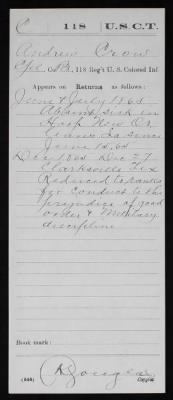 C 118 U.S.C.T.
Andrew Crow
Cpl, Co. B, 118 Reg't U. S. Colored Inf
Appears on Returns as follows:
June & July 1865
Absent sick in
Hosp New Or
leans La since
June 15, 65
Dec 1865 Dec 27
Clarksville Tex
Reduced to ranks
for conduct to the
prejudice of good
order & Military
discipline
Book mark:
(546) Copyist.